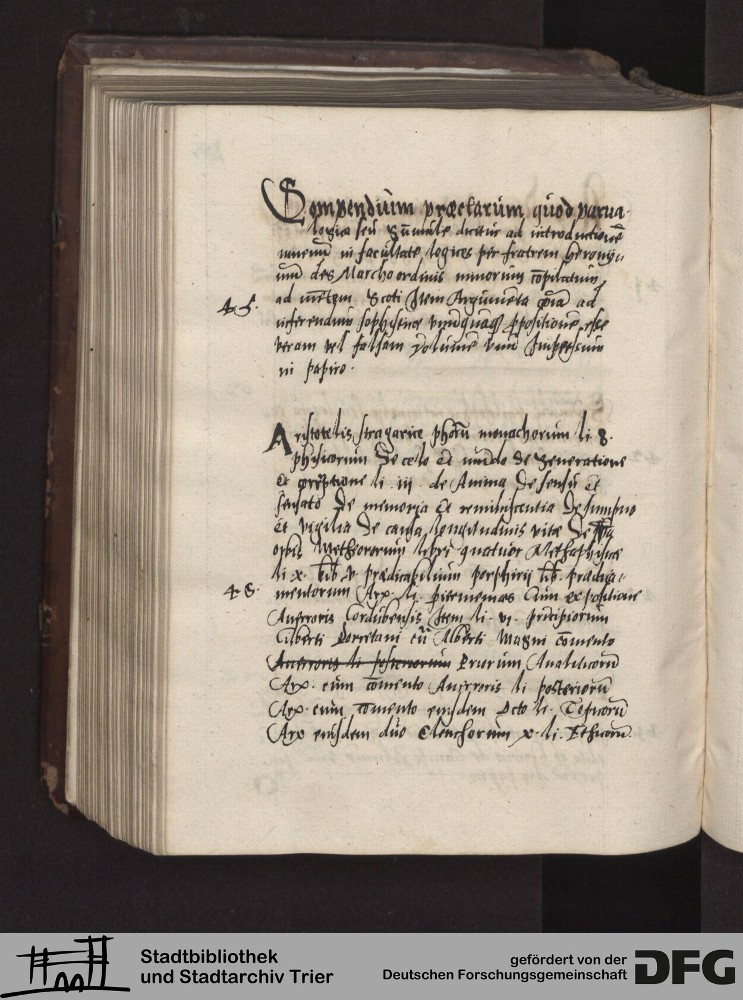 Compendiùm præclarùm, qùod parua
logica seù Sum̄ùlæ dicitùr ad introductionē
iuuenum in facùltate logices per fratrem Hierony-
mùm des Marcho ordinis minorum cōpilatùm
ad mētem Scoti Item Argùmēta
45.
inferendùm sophistice vnùmquāq3 ꝓpositionē esse
veram vel falsam volùmē vnù Impressùm
in papiro.
Aristotelis stragarice phorū monachorùm li 8.
phisicorum De celo et mùndo De Generatione
et corrùptione li. iij. de Anima De sensù et
sensato De memoria et reminiscentia De sompno
et vigilia De caùsa longitùdinis vitæ De
orbis Metheororùm libri qùatùor Methaphisicæ
li x. lib. v. prædicabiliùm porphirij lib. prædica-
48.
mentorum Arp. li. piermenias Cùm expositione
Auerrois Cordùbensis Item li. vi. principiorùm
Gilberti Porretani cū Alberti Magni cōmento
Aùerrois li posteriorùm Priorùm Analiticorū
Arp. cùm cōmento Aùerrois li posteriorū
Arp. cùm cōmento eiùsdem Octo li. Topicorū
Arp eiùsdem dùo Elenchorùm x. li. Ethicorū.
Stadtbibliothek
und Stadtarchiv Trier
gefördert von der
Deutschen Forschungsgemeinschaft
DFG